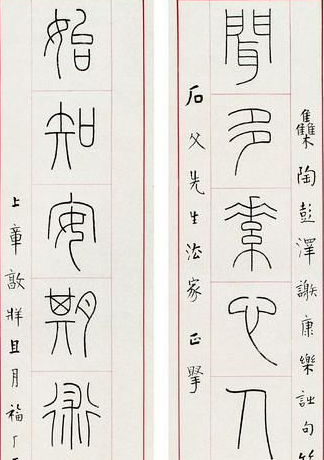 雧陶彭澤謝康樂詩句
聞多素心人
石父先生法家正
始知安期術
上章敦牂且月福厂